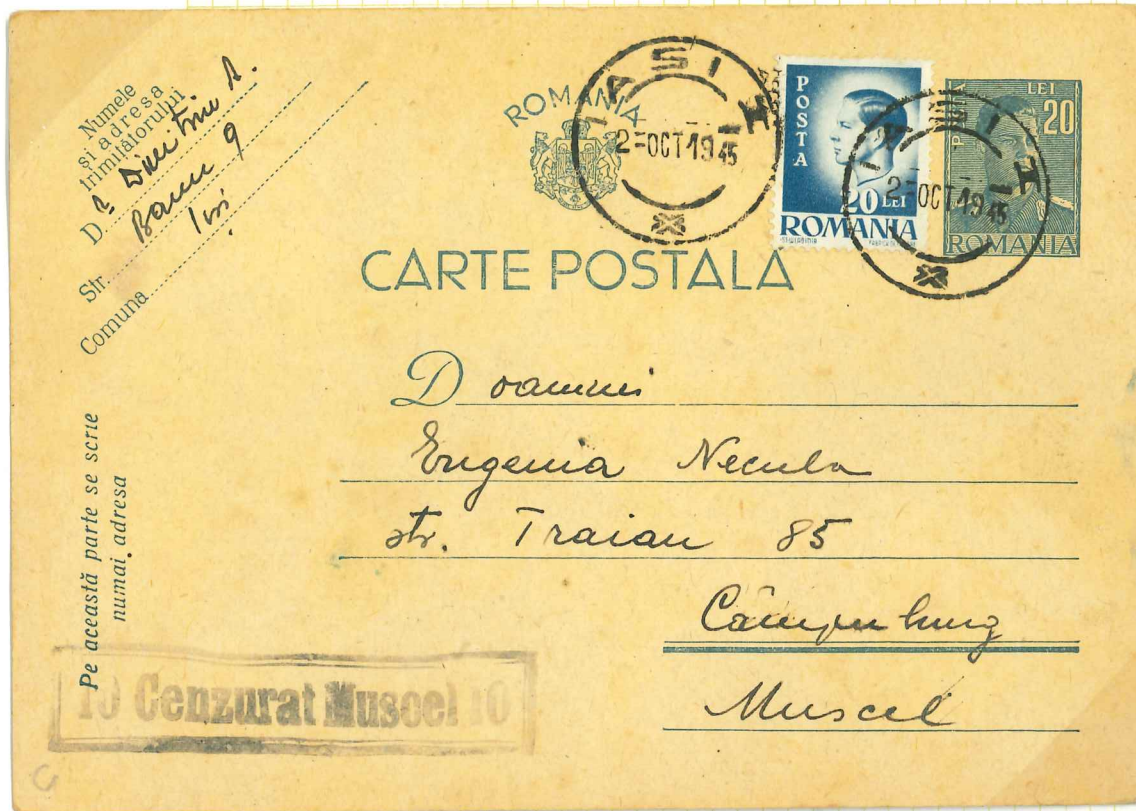 Numele
și adresa
trimițătorului
D. Dimitriu A.
Str. 9
Comuna Iași
ROMANIA
IASI I
2=OCT 1945
POSTA
20 LEI
ROMANIA
LEI
20
IASI I
2=OCT 1945
ROMANIA
CARTE POSTALA
Doamnei
Eugenia Necula
str. Traian 85
Câmpulung
Muscel
Pe această parte se scrie
numai adresa
10 Cenzurat Muscel 10